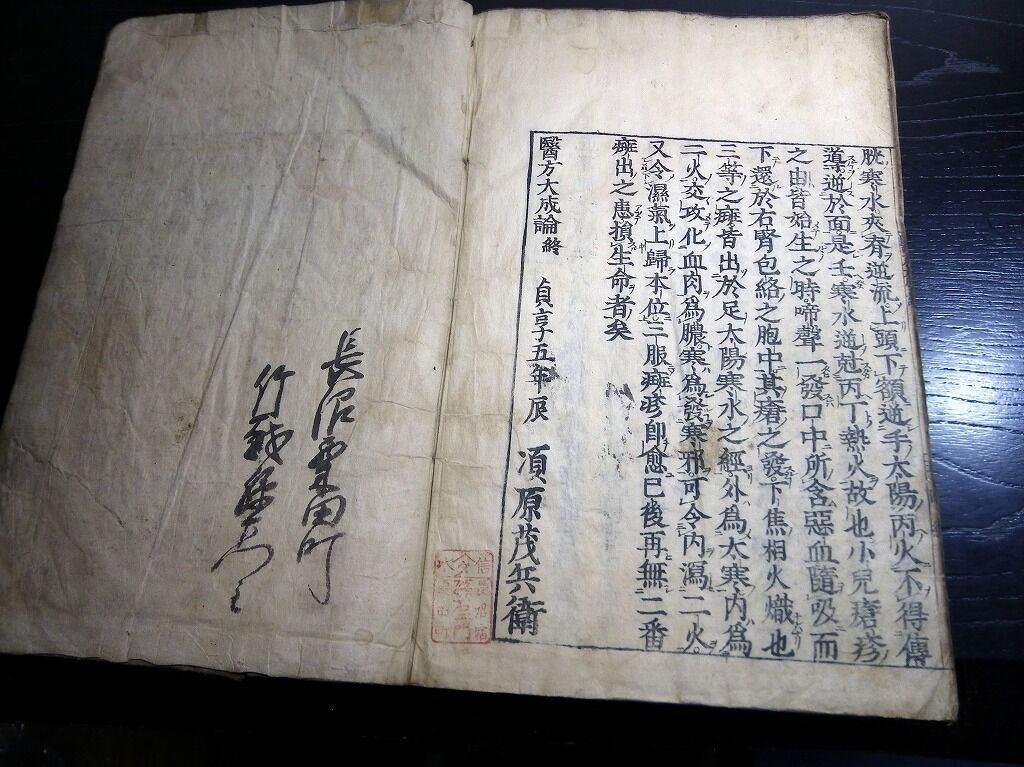 胱寒水夾脊逆流上頭下額逆手太陽丙火不得傳
導逆於面是壬寒水逆剋丙丁熱火故也小兒瘡疹
之由皆始生之時啼聲一發口中所含惡血隨吸而
下還於右腎包絡之胞中其瘡之發下焦相火熾也
三等之癍皆出於足太陽寒水之經外為太寒內為
二火交攻化血肉爲膿寒爲發寒邪可令內瀉二火
又令濕氣上歸本位三服癍疹即愈已後再無二番
癍出之患損生命者矣
醫方大成論終
貞享五年辰 須原茂兵衛
長沼栗田町